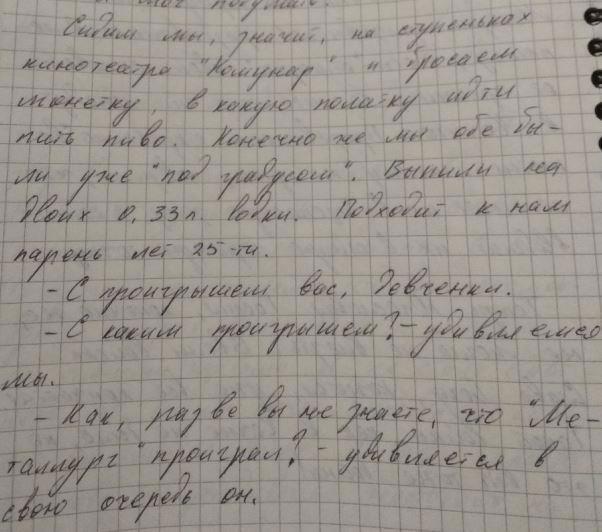 подумаю.
Сидим мы, значит, на ступеньках
кинотеатра "Комунар" и бросаем
монетку, в какую полатку идти
пить пиво. Конечно же мы обе бы-
ли уже "под градусом". Выпили на
двоих 0,33л. водки. Подходит к нам
парень лет 25-ти.
- С проигрышем вас, девченки.
- С каким проигрышем? - удивляемся
мы.
- Как, разве вы не знаете, что "Ме-
таллург" проиграл? - удивляется в
свою очередь он.